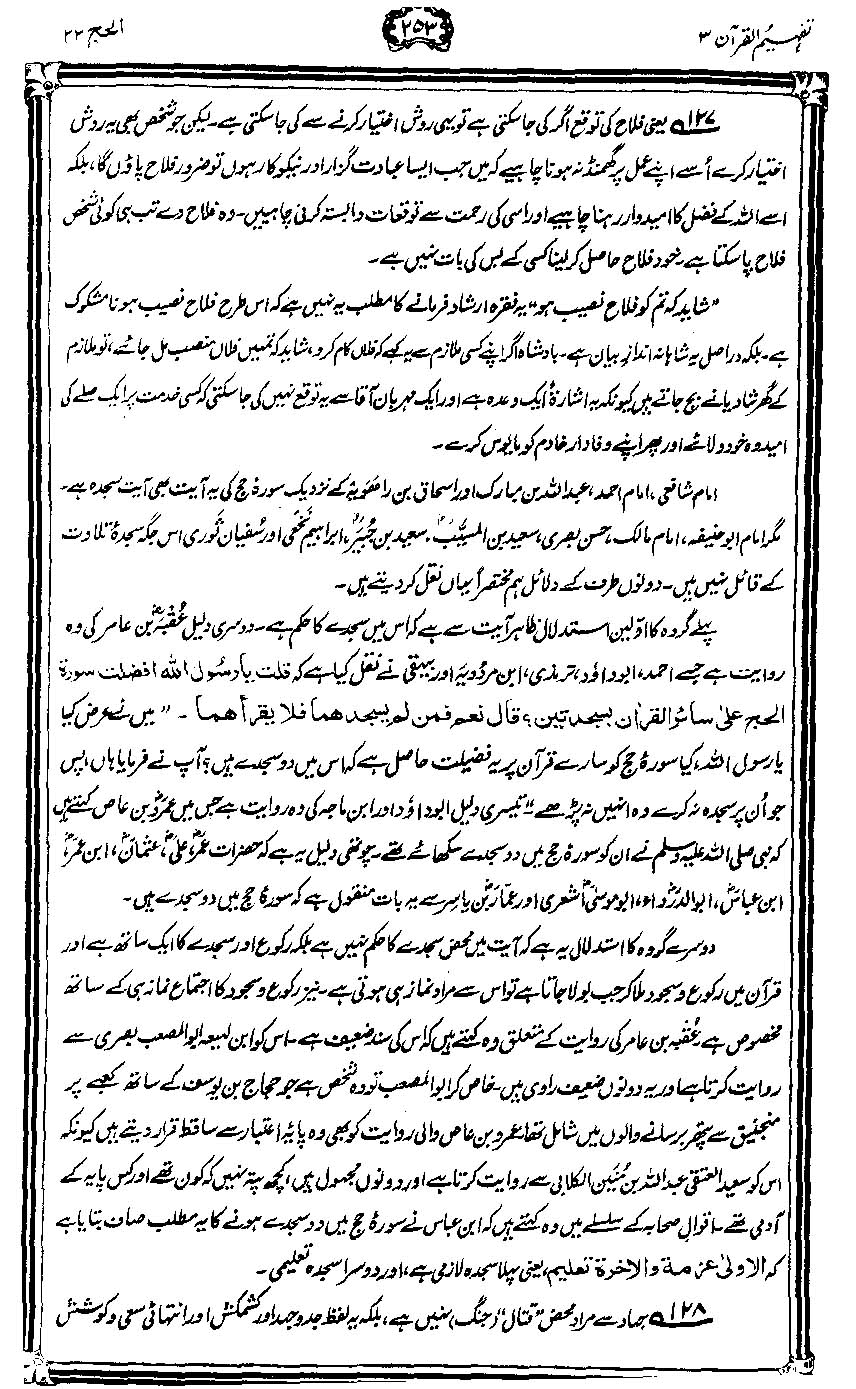 تفہیم القرآن ۳
۲۵۳
الحج ۲۲
۱۲۷ یعنی فلاح کی توقع اگر کی جاسکتی ہے تو یہی روش اختیار کرنے سے کی جاسکتی ہے۔ لیکن جو شخص بھی یہ روش
اختیار کرے اُسے اپنے عمل پر گھمنڈ نہ ہونا چاہیے کہ میں جب ایسا عبادت گزار اور نیکوکار ہوں تو ضرور فلاح پاؤں گا، بلکہ
اسے اللہ کے فضل کا امیدوار رہنا چاہیے اور اسی کی رحمت سے توقعات وابستہ کرنی چاہییں۔ وہ فلاح دے تب ہی کوئی شخص
فلاح پاسکتا ہے۔ خود فلاح حاصل کر لینا کسی کے بس کی بات نہیں ہے۔
”شاید کہ تم کو فلاح نصیب ہو“ یہ فقرہ ارشاد فرمانے کا مطلب یہ نہیں ہے کہ اس طرح فلاح نصیب ہونا مشکوک
ہے۔ بلکہ دراصل یہ شاہانہ اندازِ بیان ہے۔ بادشاہ اگر اپنے کسی ملازم سے یہ کہے کہ فلاں کام کرو، شاید کہ تمہیں فلاں منصب مل جائے، تو ملازم
کے گھر شادیانے بج جاتے ہیں کیونکہ یہ اشارۃً ایک وعدہ ہے اور ایک مہربان آقا سے یہ توقع نہیں کی جاسکتی کہ کسی خدمت پر ایک صلے کی
امید وہ خود دلائے اور پھر اپنے وفادار خادم کو مایوس کرے۔
امام شافعی، امام احمد، عبداللہ بن مبارک اور اسحاق بن راھَوَیہ کے نزدیک سورۂ حج کی یہ آیت بھی آیتِ سجدہ ہے۔
مگر امام ابوحنیفہ، امام مالک، حسن بصری، سعید بن المسیّب، سعید بن جُبیر، ابراہیم نخعی اور سُفیان ثوری اس جگہ سجدۂ تلاوت
کے قائل نہیں ہیں۔ دونوں طرف کے دلائل ہم مختصراً یہاں نقل کر دیتے ہیں۔
پہلے گروہ کا اوّلین استدلال ظاہر آیت سے ہے کہ اس میں سجدے کا حکم ہے۔ دوسری دلیل عُقبہؓ بن عامر کی وہ
روایت ہے جسے احمد، ابوداؤد، ترمذی، ابن مردویہ اور بیہقی نے نقل کیا ہے کہ قلت یا رسول اللہ افضلت سورۃ
الحج علیٰ سائر القرآن بسجدتین؟ قال نعم فمن لم یسجدھما فلا یقرأھما۔ ”میں نے عرض کیا
یا رسول اللہ، کیا سورۂ حج کو سارے قرآن پر یہ فضیلت حاصل ہے کہ اس میں دو سجدے ہیں؟ آپ نے فرمایا ہاں، پس
جو اُن پر سجدہ نہ کرے وہ انہیں نہ پڑھے“۔ تیسری دلیل ابوداؤد اور ابن ماجہ کی وہ روایت ہے جس میں عمروؓ بن عاص کہتے ہیں
کہ نبی صلی اللہ علیہ وسلم نے ان کو سورۂ حج میں دو سجدے سکھائے تھے۔ چوتھی دلیل یہ ہے کہ حضرات عمرؓ، علیؓ، عثمانؓ، ابن عمرؓ،
ابن عباسؓ، ابوالدرداء، ابوموسیٰؓ اشعری اور عمارؓ بن یاسر سے یہ بات منقول ہے کہ سورۂ حج میں دو سجدے ہیں۔
دوسرے گروہ کا استدلال یہ ہے کہ آیت میں محض سجدے کا حکم نہیں ہے بلکہ رکوع اور سجدے کا ایک ساتھ ہے اور
قرآن میں رکوع و سجود ملا کر جب بولا جاتا ہے تو اس سے مراد نماز ہی ہوتی ہے۔ نیز رکوع و سجود کا اجتماع نماز ہی کے ساتھ
مخصوص ہے۔ عُقبہ بن عامر کی روایت کے متعلق وہ کہتے ہیں کہ اس کی سند ضعیف ہے۔ اس کو ابن لہیعہ ابوالمصعب بصری سے
روایت کرتا ہے اور یہ دونوں ضعیف راوی ہیں۔ خاص کر ابوالمصعب تو وہ شخص ہے جو حجاج بن یوسف کے ساتھ کعبے پر
منجنیق سے پتھر برسانے والوں میں شامل تھا۔ عمرو بن عاص والی روایت کو بھی وہ پایۂ اعتبار سے ساقط قرار دیتے ہیں کیونکہ
اس کو سعید العتقی عبداللہ بن مُنَین الکلابی سے روایت کرتا ہے اور دونوں مجہول ہیں، کچھ پتہ نہیں کہ کون تھے اور کس پایہ کے
آدمی تھے۔ اقوالِ صحابہ کے سلسلے میں وہ کہتے ہیں کہ ابن عباس نے سورۂ حج میں دو سجدے ہونے کا یہ مطلب صاف بتایا ہے
کہ الاولیٰ عزمۃ والاٰخرۃ تعلیم، یعنی پہلا سجدہ لازمی ہے، اور دوسرا سجدہ تعلیمی۔
۱۲۸ جہاد سے مراد محض ”قتال“ (جنگ) نہیں ہے، بلکہ یہ لفظ جدوجہد اور کشمکش اور انتہائی سعی و کوشش